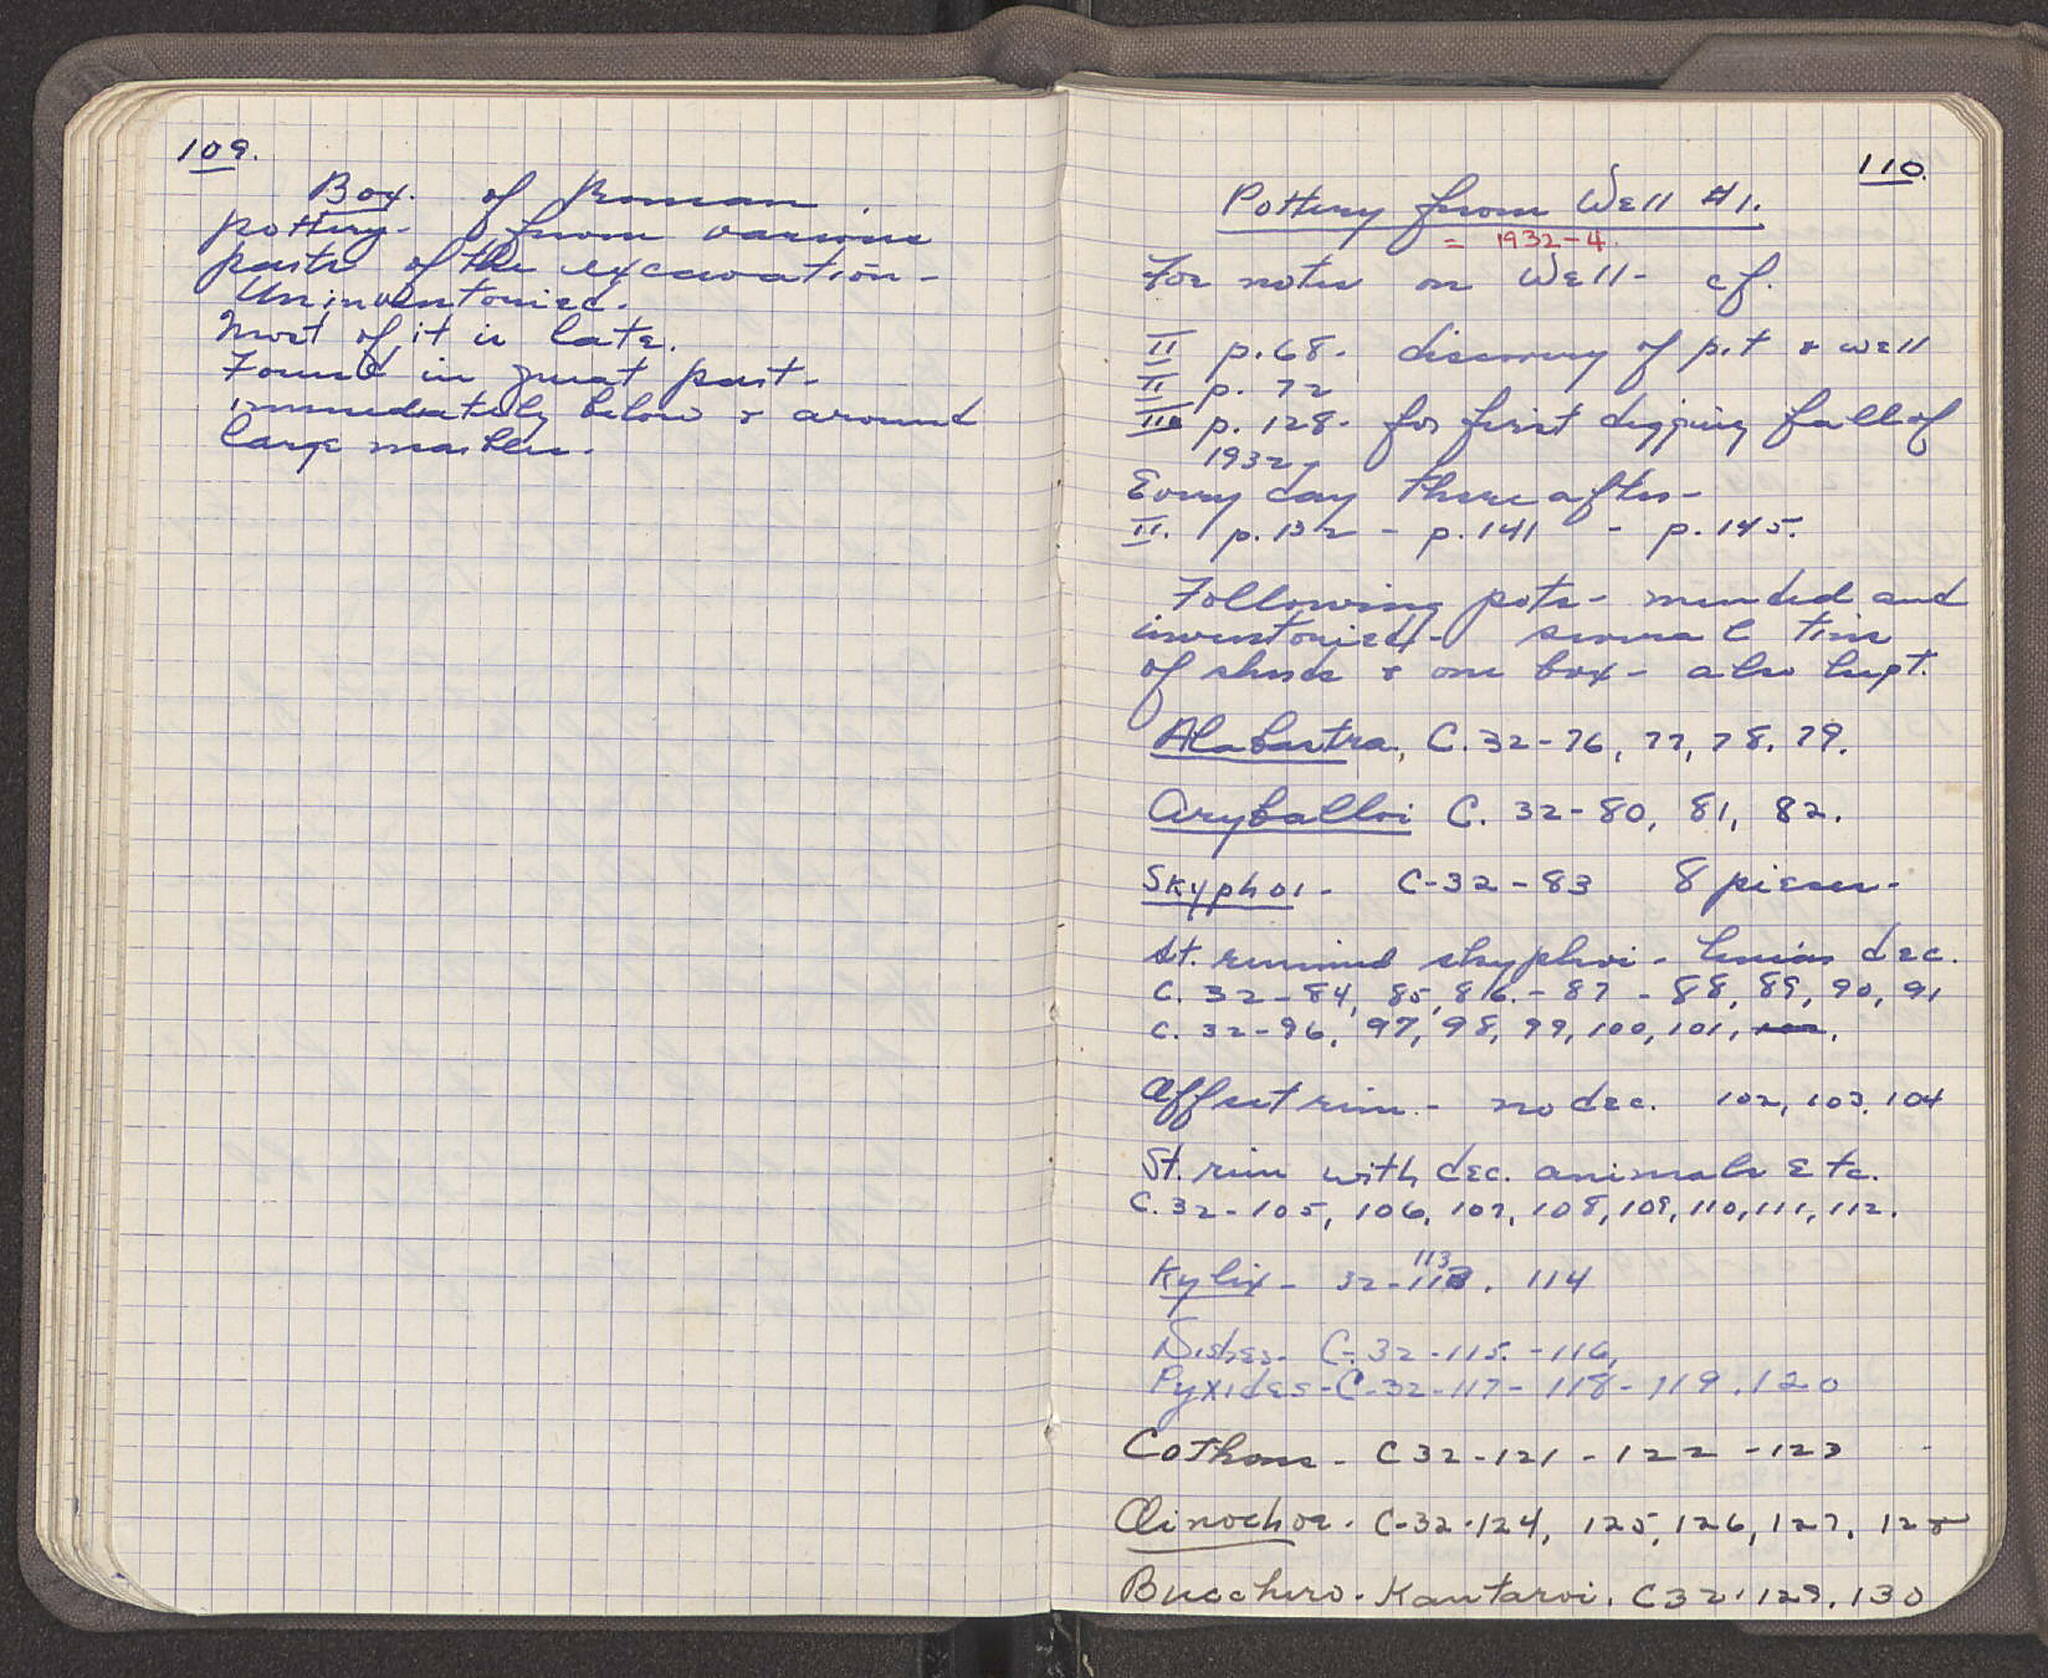 109.
Box. of Roman
pottery- from various
parts of the excavation-
Uninventoried.
Most of it is late.
Found in great part-
immediately below & around
large marbles.
110.
Pottery from Well #1.
= 1932-4.
For notes on Well- cf.
II p. 68. discovery of pit & well
II p. 72
II p. 128. for first digging fall of
1932,
Every day thereafter-
II. p. 132 - p. 141 - p. 145.
Following pots- mended and
inventoried- several tins
of sherds & one box- also kept.
Alabastra, C. 32-76, 77, 78, 79.
Aryballoi C. 32-80, 81, 82.
Skyphoi- C-32-83 8 pieces-
St. rimmed skyphoi- linear dec.
C. 32-84, 85, 86.-87 - 88, 89, 90, 91
C. 32-96, 97, 98, 99, 100, 101, 102,
Offset rim.- no dec. 102, 103, 104
St. rim with dec. animals etc.
C. 32-105, 106, 107, 108, 109, 110, 111, 112.
113
Kylix- 32-113. 114
Dishes- C-32-115.-116,
Pyxides-C-32-117-118-119.120
Cothons- C32-121-122-123
Oinochoe. C-32-124, 125, 126, 127, 128
Bucchero. Kantaroi. C32.129.130